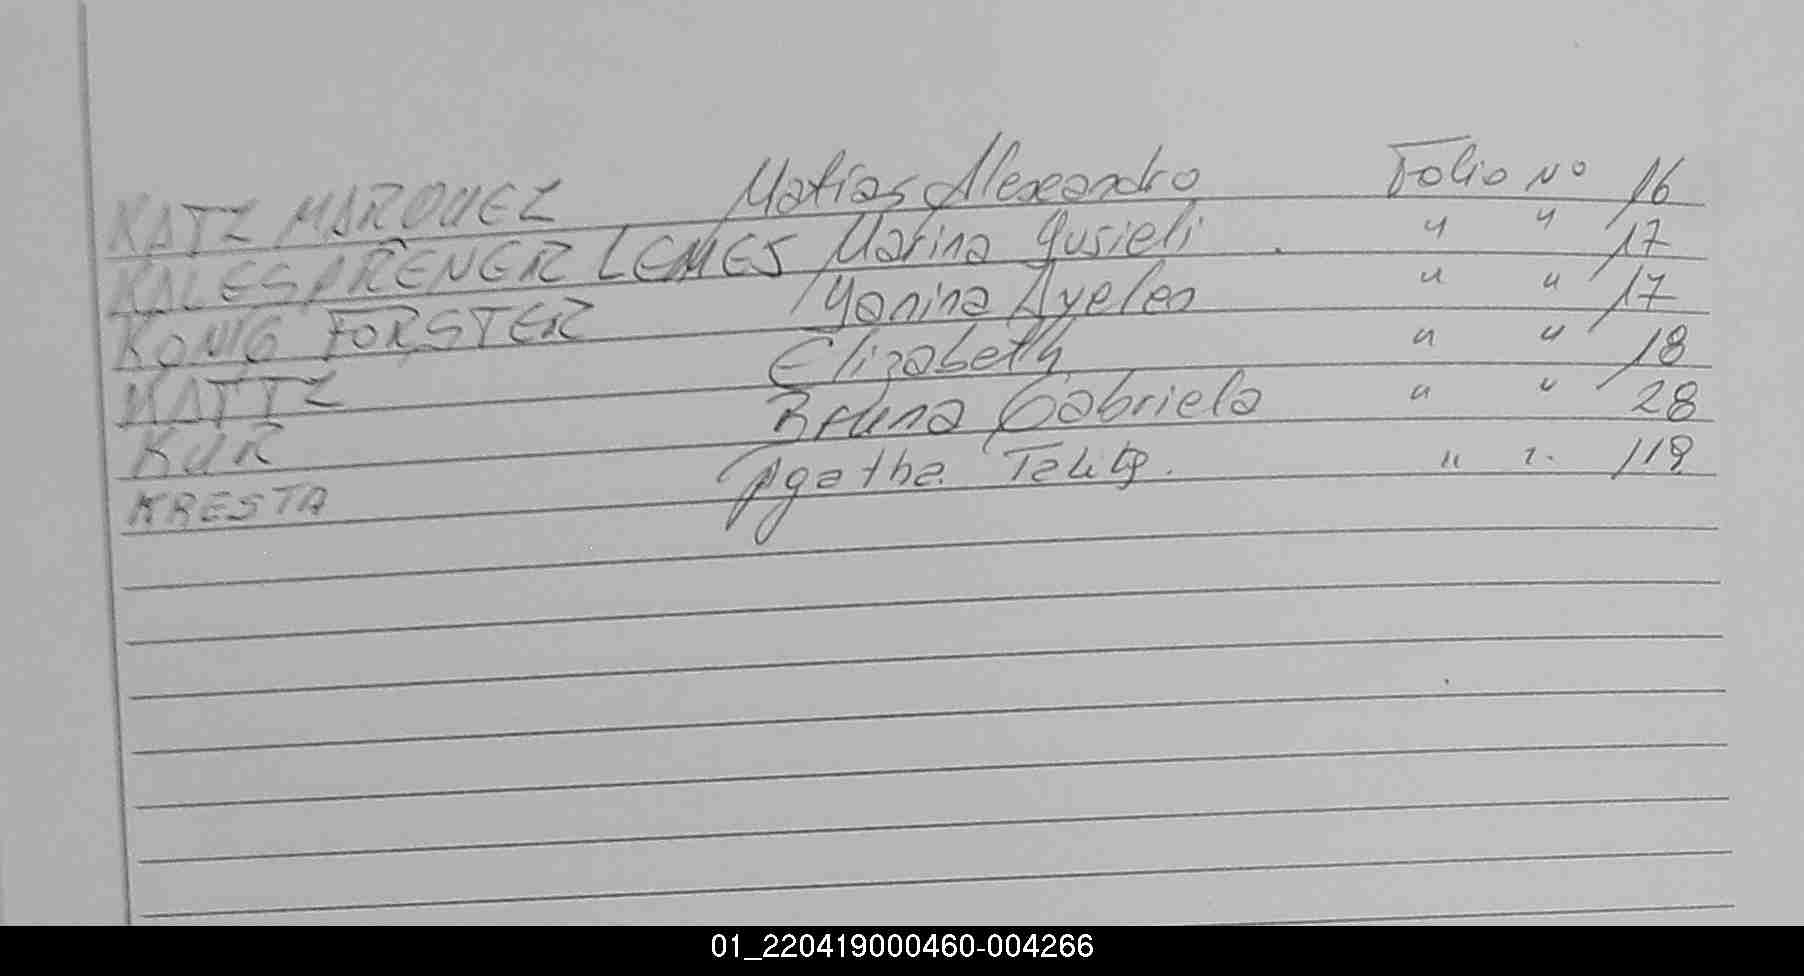 KATZ MARQUEZ Matías Alexandro Folio Nº 16
KALESPRENER LEMES Marina Yusieli " " 17
KONIG FORSTER Yanina Ayelen " " 17
KATTZ Elizabeth " " 18
KUR Bruna Gabriela " " 28
KRESTA Agatha " " 119
01_220419000460-004266